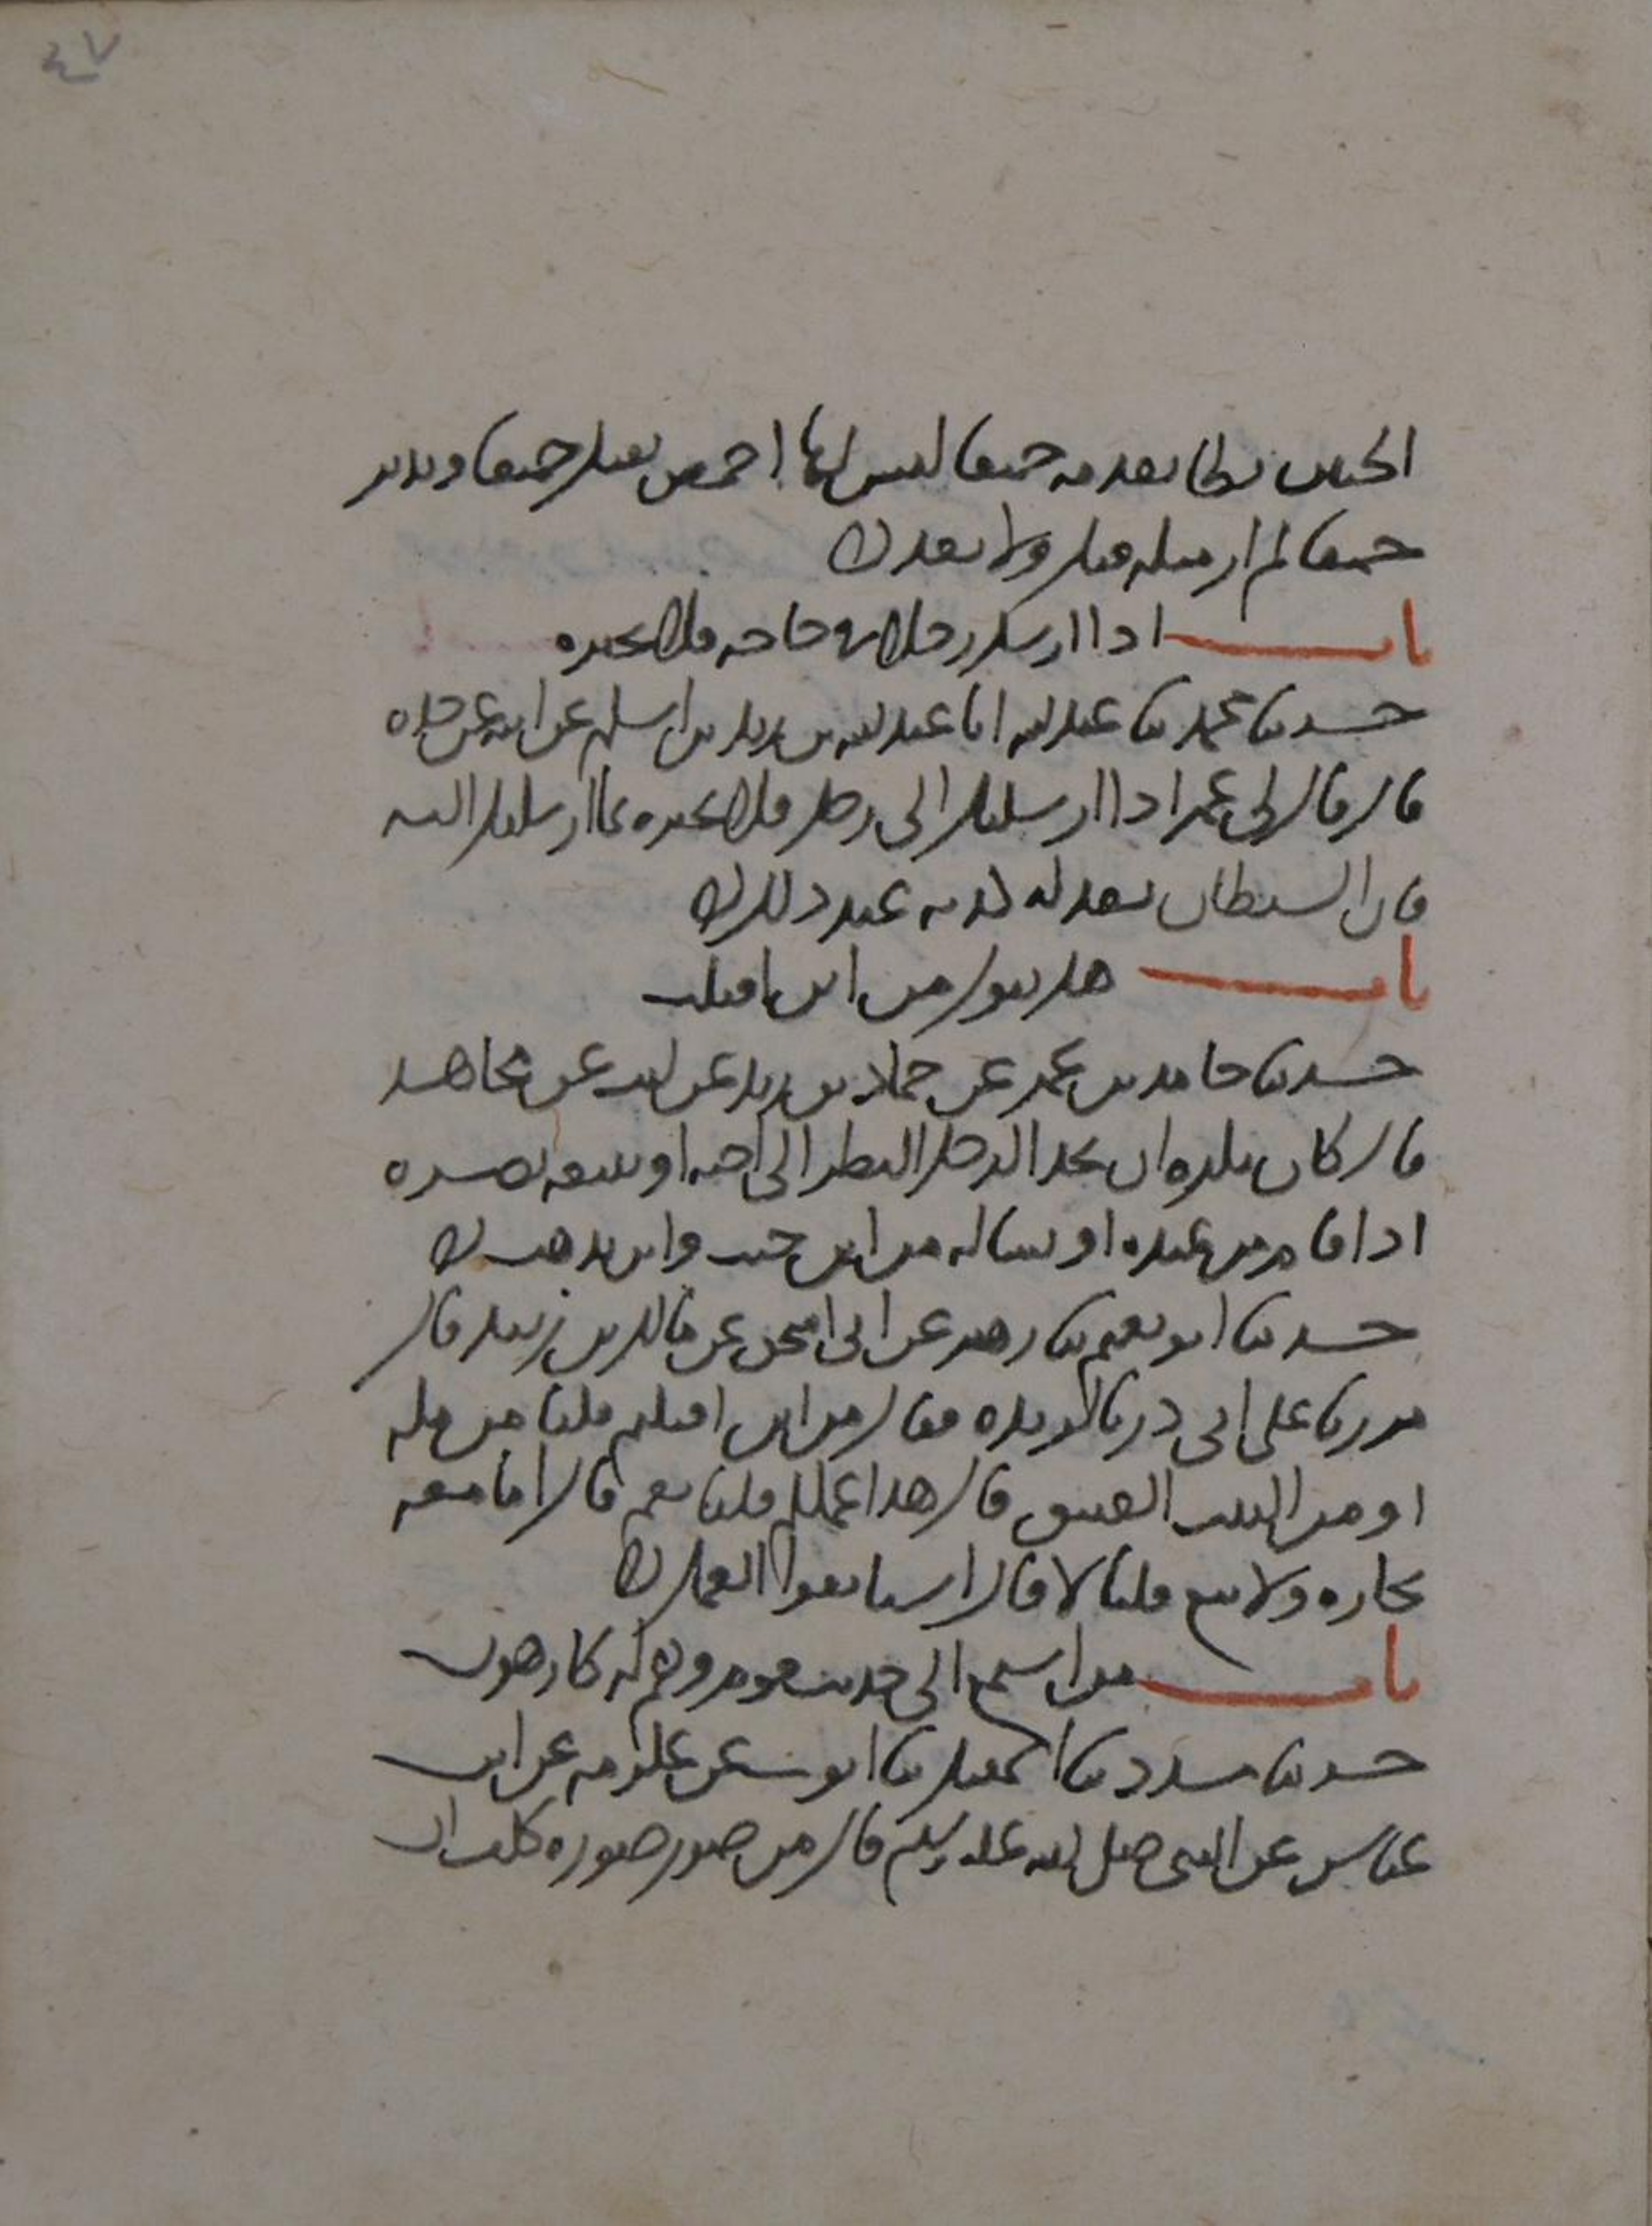 ٤٧
الجبين يطا بقدمه جميعا ليس لها اخمص يقبل جميعا ويدبر
جميعا لم ار مثله قبل ولا بعد ن
باب اذا ارسل رجلا في حاجة فلا يخبره
حدثنا محمد ثنا عبد الله انا عبد الله بن زيد بن اسلم عن ابيه عن جده
قال قال لي عمر اذا ارسلتك الى رجل فلا تخبره بما ارسلتك اليه
فان الشيطان يعد له كذبة عند ذلك ن
باب هل يقول من اين اقبلت
حدثنا حامد بن عمر عن حماد بن زيد عن ليث عن مجاهد
قال كان يكره ان يحد الرجل النظر الى اخيه او يتبعه بصره
اذا قام من عنده او يساله من اين جيت واين يذهب ن
حدثنا ابو نعيم ثنا زهير عن ابي اسحق عن مالك بن زبيد قال
مررنا على ابي ذر بالربذة فقال من اين اقبلتم قلنا من مكة
او من البيت العتيق قال هذا عملكم قلنا نعم قال اما معه
تجارة ولا بيع قلنا لا قال استانفوا العمل ن
باب من استمع الى حديث قوم وهم له كارهون
حدثنا مسدد ثنا اسمعيل ثنا ايوب عن عكرمة عن ابن
عباس عن النبي صلى الله عليه وسلم قال من صور صورة كلف ان